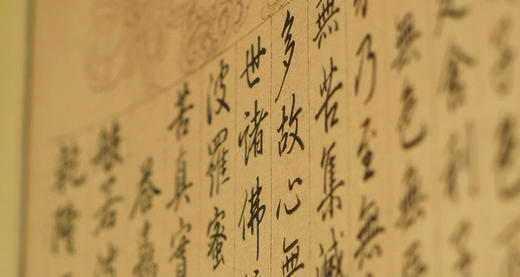 子色
舍利子
無色無
乃至無
無苦集滅
多故心無
世諸佛
波羅蜜
苦真實
般若
乾隆